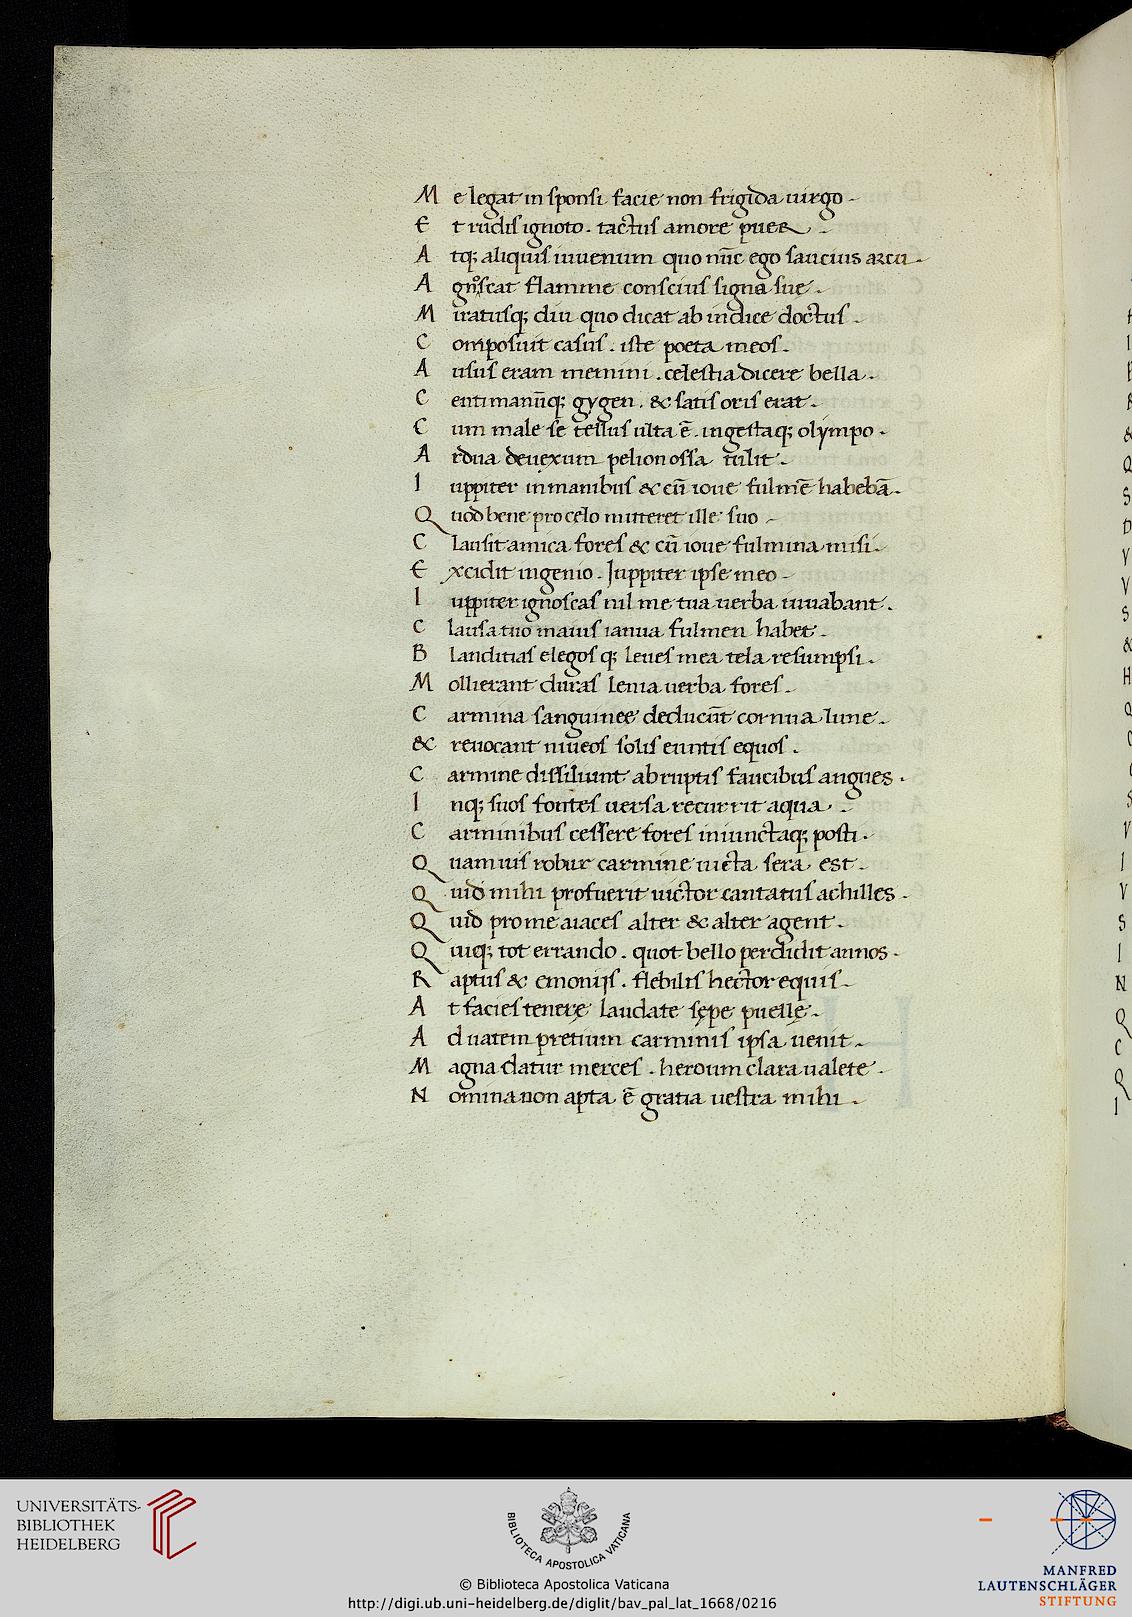 Me legat in sponsi facie non frigida uirgo.
Et rudis ignoto. tactus amore puer.
Atq; aliquis iuuenum quo nūc ego saucius arcu.
Agnoscat flamme conscius signa sue.
Miratusq; diu quo dicat ab indice doctus.
Composuit casus. iste poeta meos.
Ausus eram memini. celestia dicere bella.
Centimanūq; gygen. & satis oris erat.
Cum male se tellus ulta ē. ingestaq; olympo.
Ardua deuexum pelion ossa tulit.
Iuppiter in manibus & cū ioue fulmē habebā.
Quod bene pro celo mitteret ille suo
Clausit amica fores & cū ioue fulmina misi.
Excidit ingenio. Juppiter ipse meo
Iuppiter ignoscas nil me tua uerba iuuabant.
Clausa tuo maius ianua fulmen habet.
Blanditias elegosq; leues mea tela resumpsi.
Mollierant duras lenia uerba fores.
Carmina sanguinee deducūt cornua lune.
& reuocant niueos solis euntis equos.
Carmine dissiliunt abruptis faucibus angues.
Inq; suos fontes uersa recurrit aqua.
Carminibus cessere fores iniunctaq; posti.
Quamuis robur carmine uicta sera est.
Quid mihi profuerit uictor cantatus achilles.
Quid pro me aiaces alter & alter agent.
Quiq; tot errando. quot bello perdidit annos.
Raptus & emonijs. flebilis hector equis.
At facies tenerę laudate sępe puellę.
Ad uatem pretium carminis ipsa uenit.
Magna datur merces. heroum clara ualete.
Nomina non apta ē gratia uestra mihi.
UNIVERSITÄTS-
BIBLIOTHEK
HEIDELBERG
BIBLIOTECA APOSTOLICA VATICANA
© Biblioteca Apostolica Vaticana
http://digi.ub.uni-heidelberg.de/diglit/bav_pal_lat_1668/0216
MANFRED
LAUTENSCHLÄGER
STIFTUNG